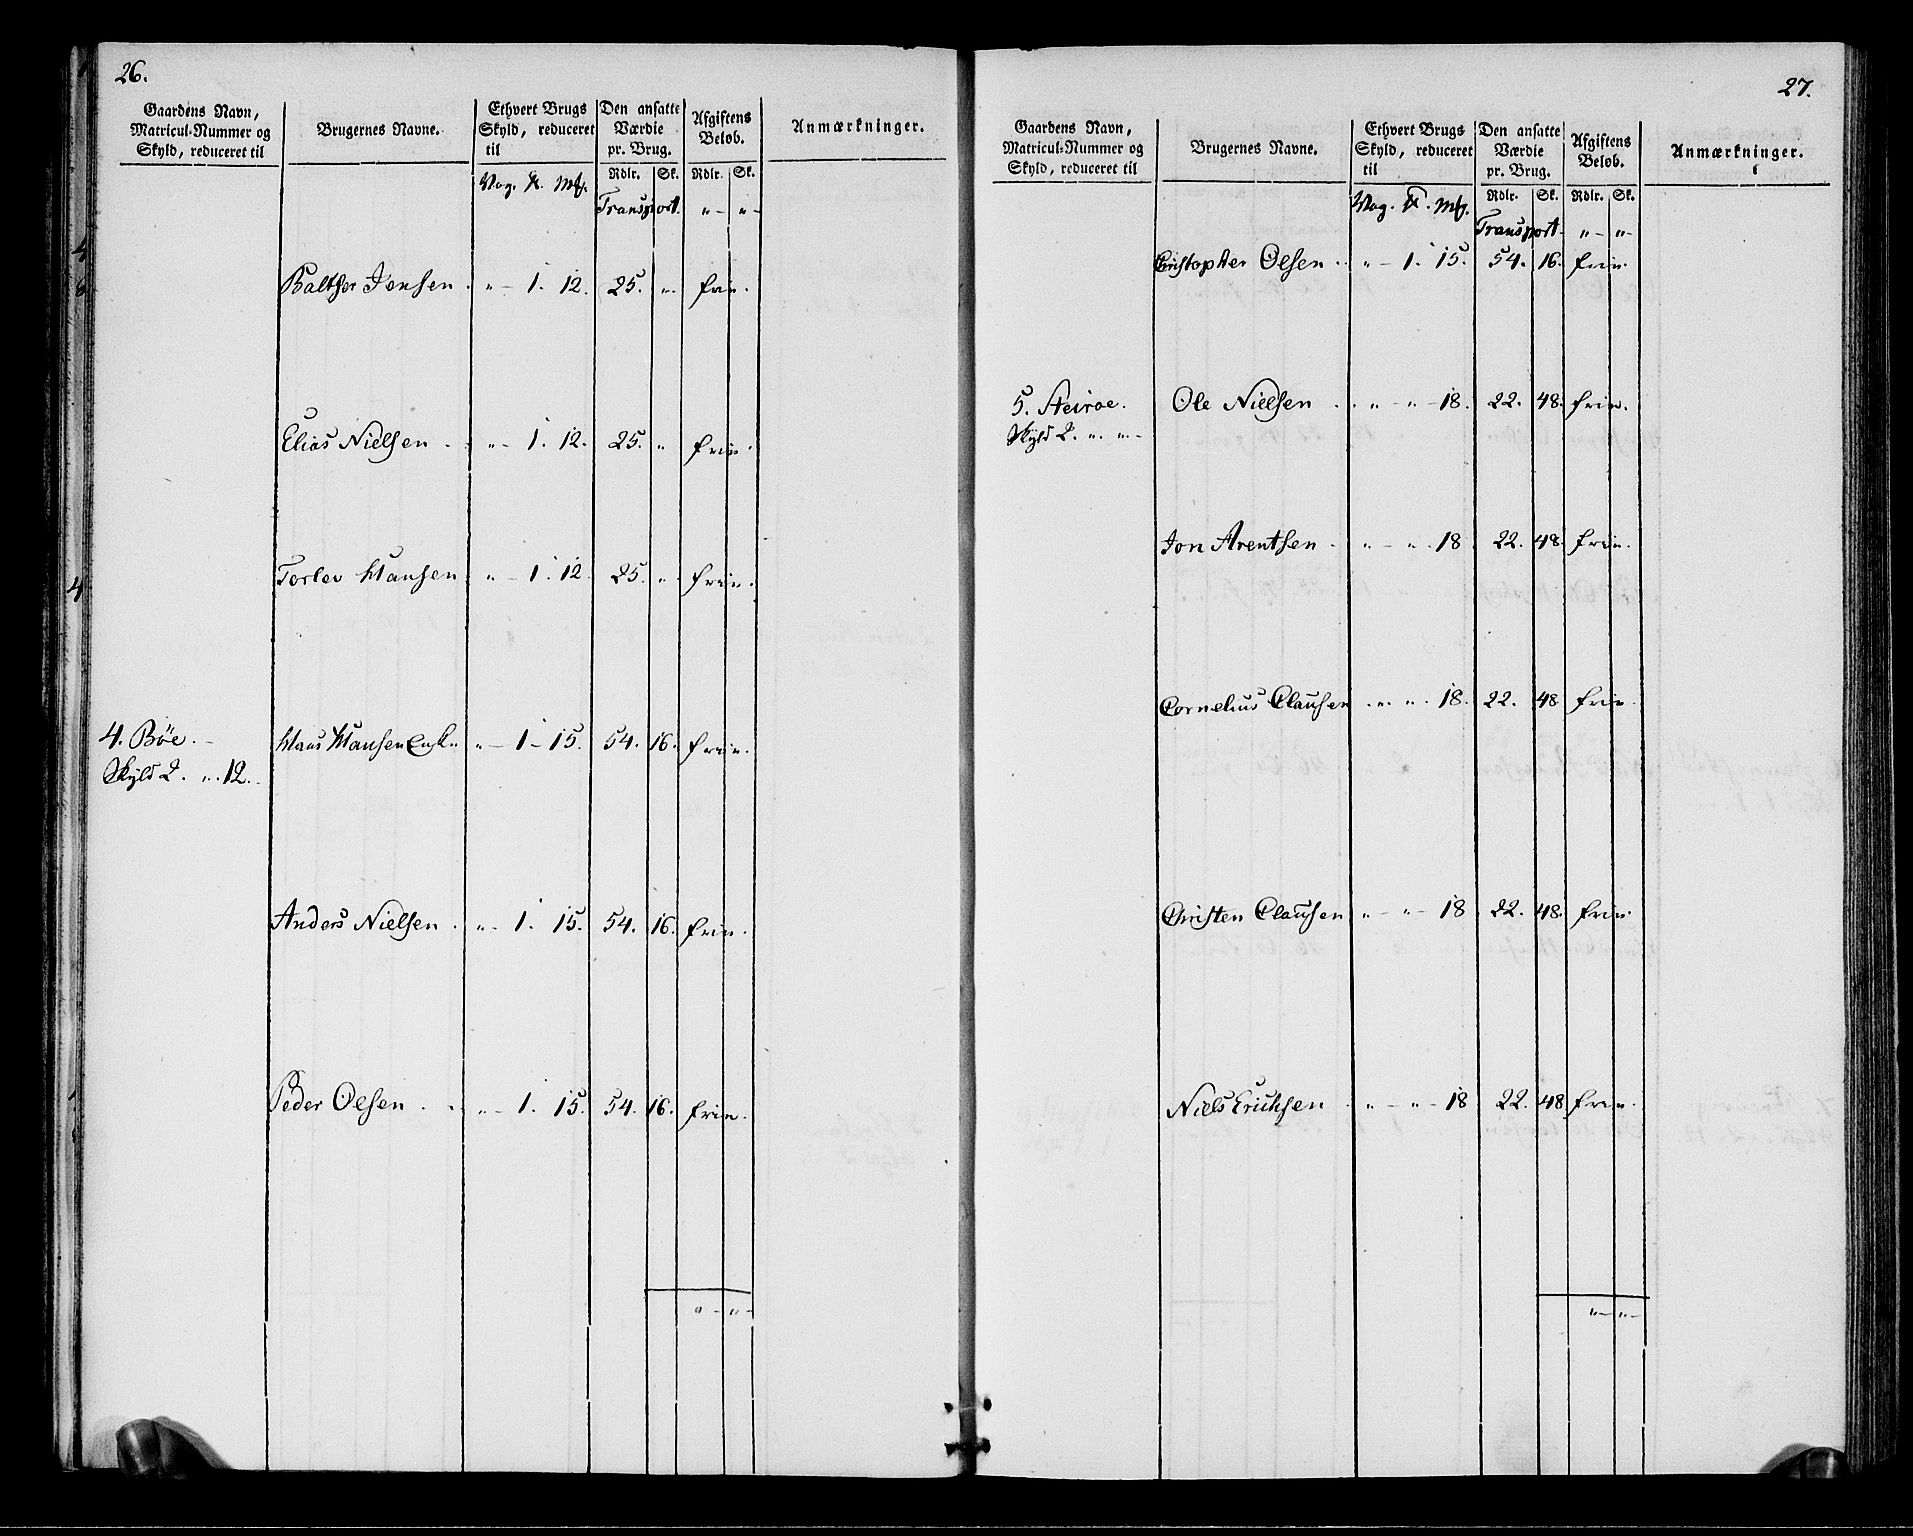 26.
Gaardens Navn, Matricul-Nummer og Skyld, reduceret til | Brugernes Navne. | Ethvert Brugs Skyld, reduceret til | Den ansatte Værdie pr. Brug. | Afgiftens Beløb. | Anmærkninger.
Rdlr. Sk. Rdlr. Sk.
Vog. Mk.
Transport. " - " -
Balthser Jensen . " - 1. 12. 25. " . frie.
Elias Nielsen . . " - 1. 12. 25. " frie.
Torlev Hansen . " - 1. 12. 25. " . frie.
4. Bøe. - Hans Hansen Enke " - 1 - 15. 54. 16. frie.
Skyld 2. " . 12.
Anders Nielsen . " - 1. 15. 54. 16. frie.
Peder Olsen . . " - 1. 15. 54. 16. frie.
" - " -
27.
Gaardens Navn, Matricul-Nummer og Skyld, reduceret til | Brugernes Navne. | Ethvert Brugs Skyld, reduceret til | Den ansatte Værdie pr. Brug. | Afgiftens Beløb. | Anmærkninger.
Rdlr. Sk. Rdlr. Sk.
Vog. Mk.
Transport - " - " -
Christopher Olsen . . " - 1. 15. 54. 16. frie.
5. Steiroe. Ole Nielsen . . " - " - 18. 22. 48. frie.
Skyld 2. " . " -
Jon Arentsen . " - " . 18 22. 48. frie.
Cornelius Clausen . " . " . - 18. 22. 48 frie.
Christen Clausen " - " - 18 22. 48. frie.
Niels Erichsen . " - " - 18 22. 48 frie.
" - " -